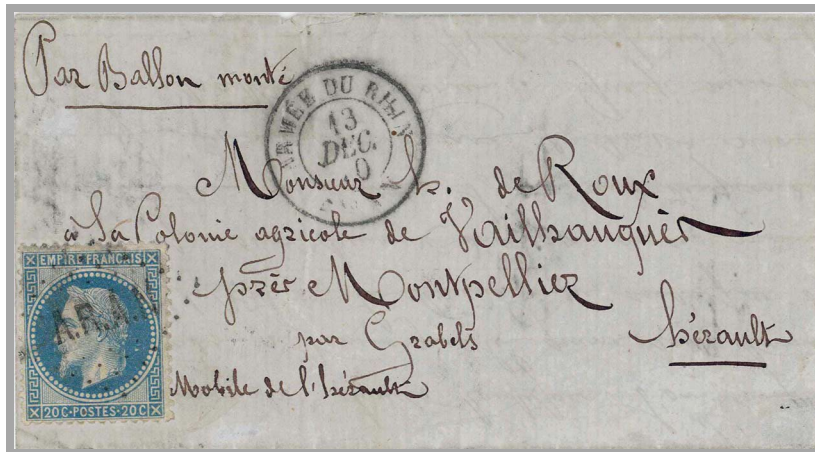 Par Ballon monté
ARMÉE DU RHIN
13
DEC.
0
Monsieur h. de Roux
à La Colonie agricole de Vailhauquès
près Montpellier
par Grabels Hérault
Mobile de l'hérault
EMPIRE FRANCAIS
20C-POSTES-20C